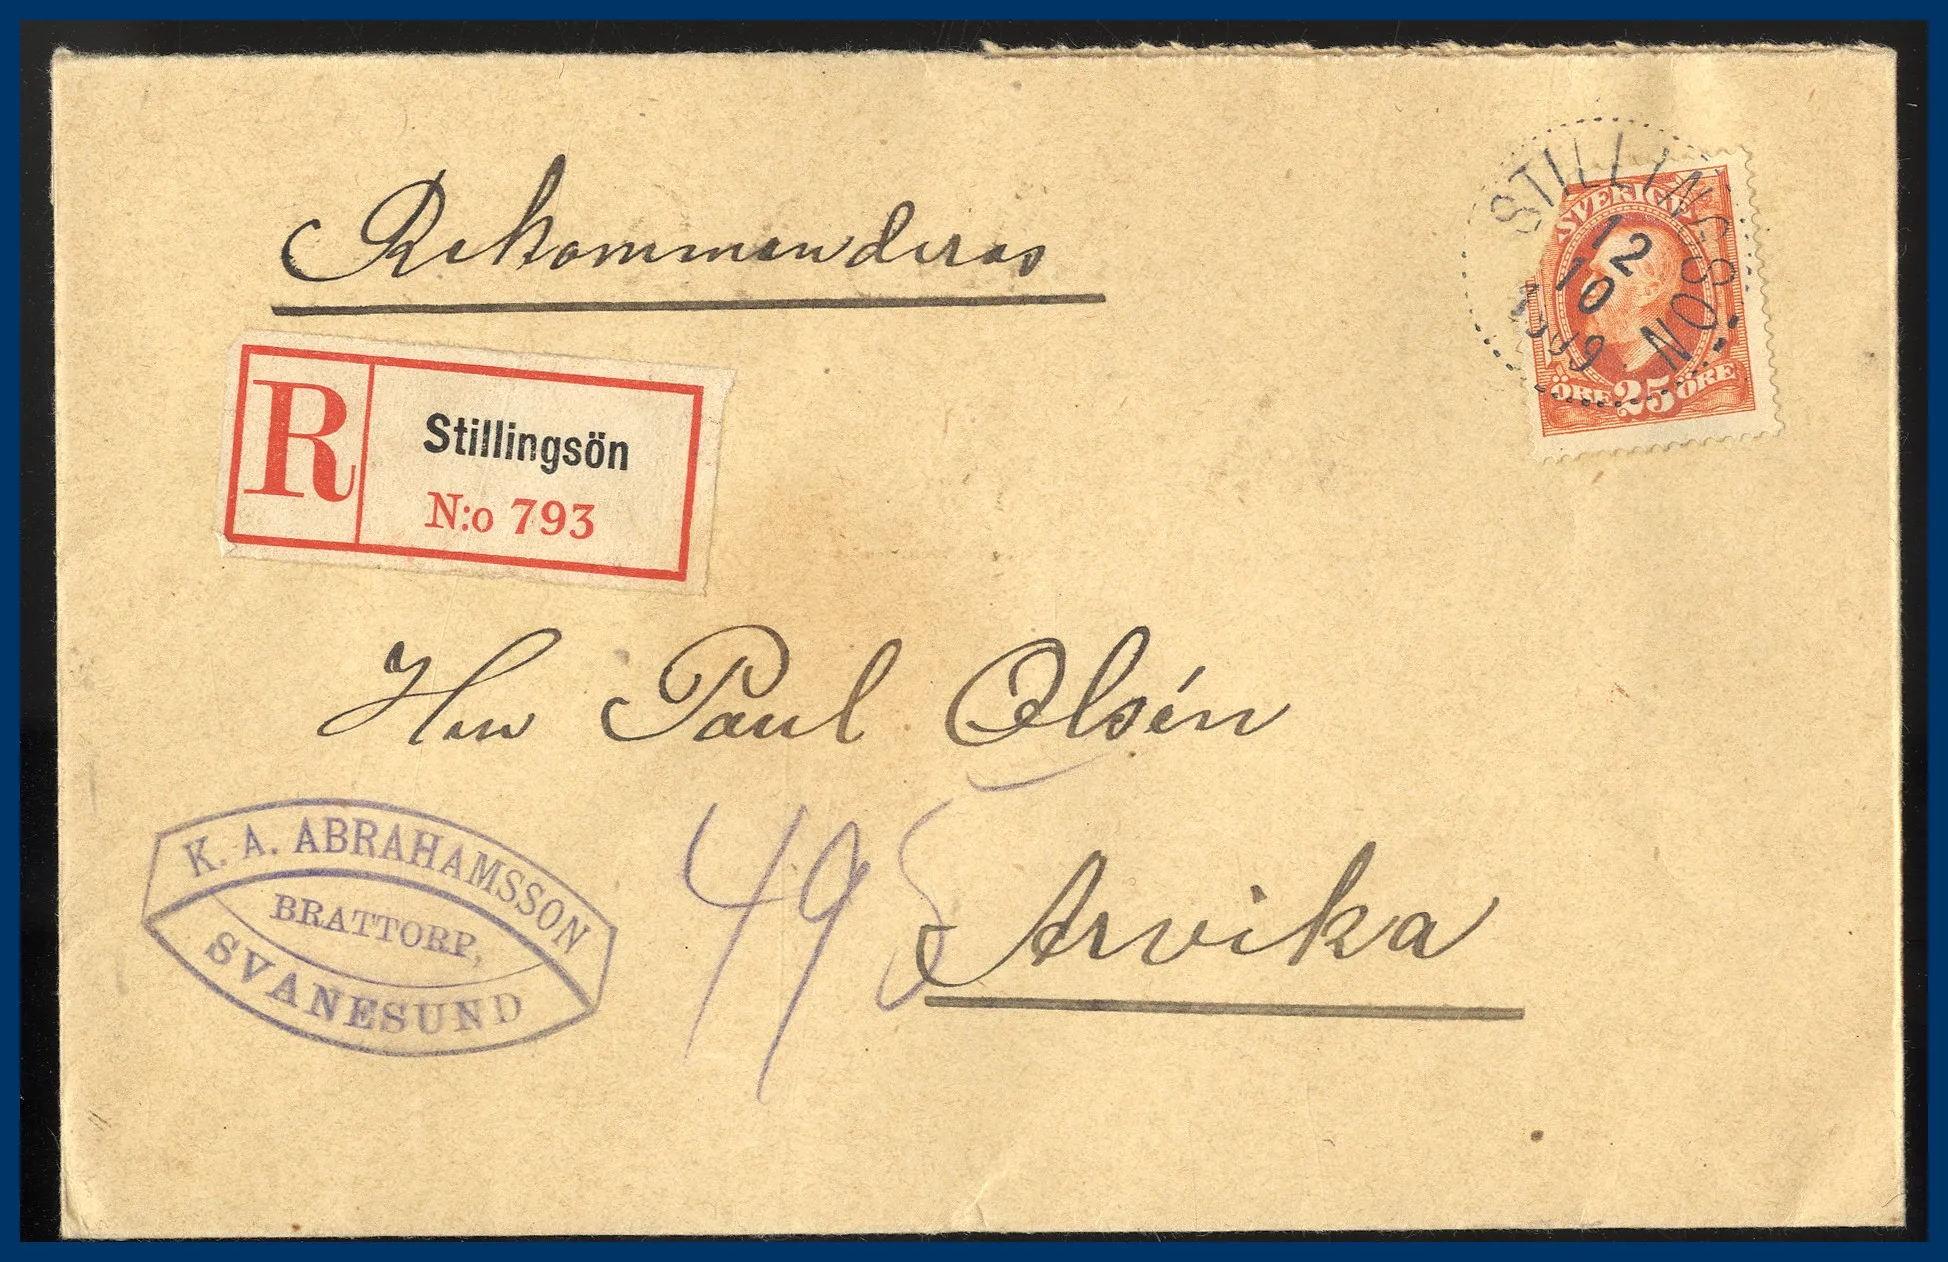 Rekommenderas
STILLINGSÖN
12
10
SVERIGE
ÖRE 25 ÖRE
R
Stillingsön
N:o 793
Herr Paul Olsén
495
Arvika
K. A. ABRAHAMSSON
BRATTORP,
SVANESUND